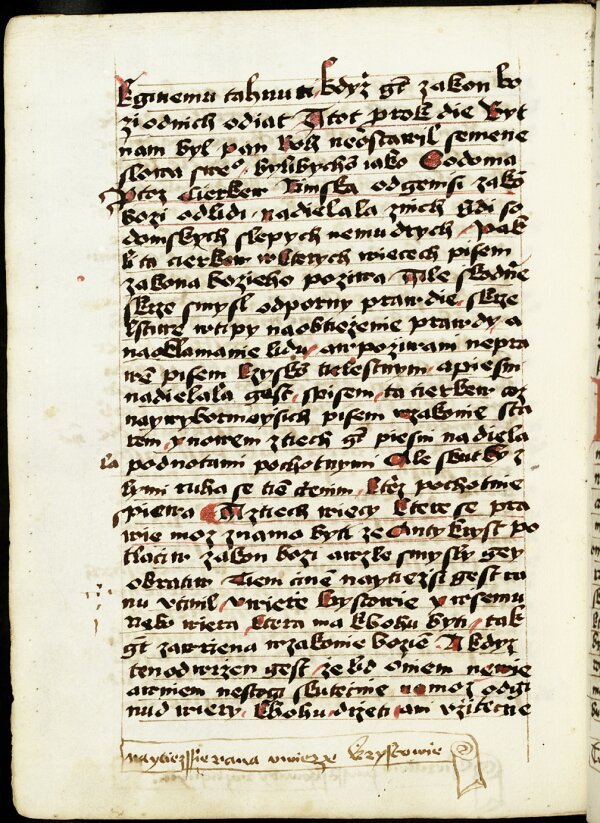 k ginemu tahnuti, kdyz gt zakon bo
zi odnich odiat A tot prok die Byt
nam byl pan Boh neostawil semene
slowa sweo bylibychō iako Sodoma
Ptez Cierkew Rimska odgemsi zako
bozi odlidi nadielala znich lidi so
domskych slepych nemudrych Pak
li ta cierkew wkterych wiecech pisem
zakona bozieho poziwa Ale skodnie
skrze smysl odporny prawdie skrze
lstiwe wtipy naobtiezenie prawdy a
naoklamanie lidu awpoziwani nepra
wē pisem krzysko
nadielala gest spisem ta cierkew coz
naywybornieysich pisem wzakonie sta
rem ynowem ztiech gt piesni nadiela
la podnotami pochotnymi Ale skutky z
hmi ruha se tiem ktēz pochotnie
spiewa A ztiech wiecy ktere se pra
wie moz znamo byti ze Antykryst po
tlaciw zakon bozi awzle smysly gey
obratiw Tiem cinē naytiezsi gest ra
nu vcinil vwiere krystowie ywsemu
neb wiera ktera ma kbohu byti tak
gt zawriena wzakonie boziē A kdyz
tenodwrzen gest ze lid oniem newie
awniem nestogi skutecnie nemoz odgi
nud wiery kbohu drzeti ani vzitecne
naytiezssie rana vwierze krystowie